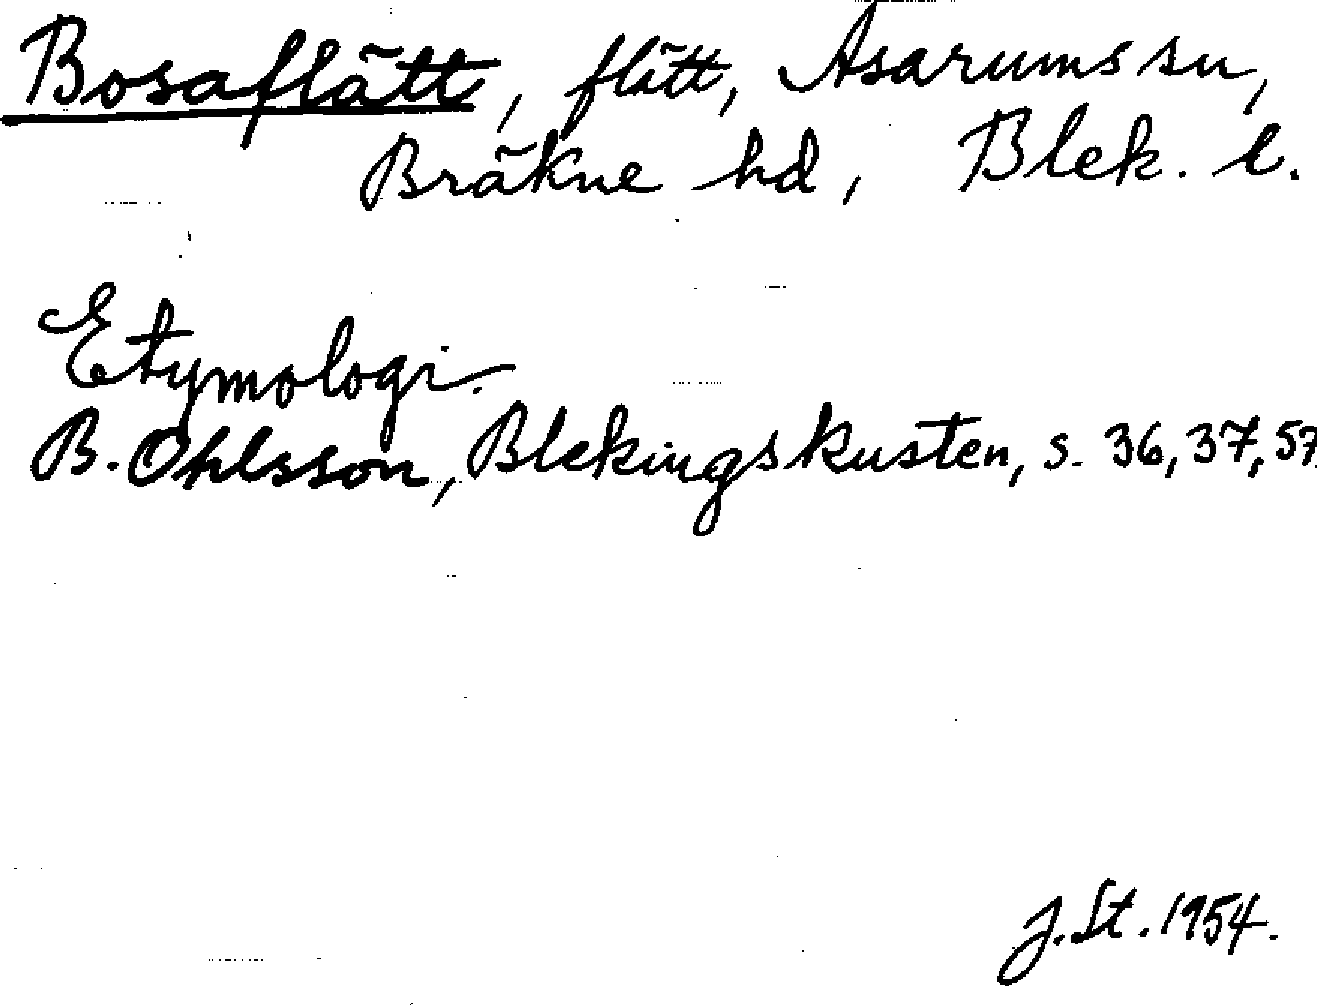 Bosaflätt, flätt, Asarums sn,
Bräkne hd, Blek. l.
Etymologi.
B. Ohlsson, Blekingskusten, s. 36, 37, 57.
J. St. 1954.